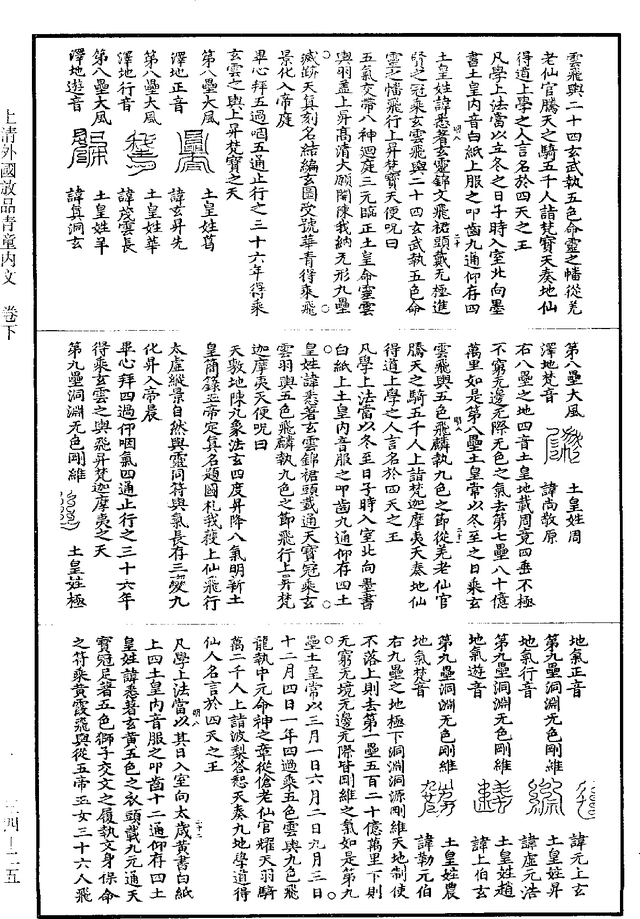 雲飛輿二十四玄武執五色命靈之幡從羌
老仙官騰天之騎五千人詣梵寶天奏地仙
得道上學之人言名於四天之王
凡學上法當以立冬之日子時入室北向墨
書土皇內音白紙上服之叩齒九通仰存四
土皇姓諱悉著玄靈錦文飛裙頭戴无極進
賢之冠乘玄雲飛輿二十四玄武執五色命
靈之幡飛行上昇梵寶天便呪曰
五氣交帶八神迴庭三元臨正土皇命靈雲
輿羽蓋上昇高清大願開陳我納无形九壘
滅跡天真刻名結編玄圖受號華青得乘飛
景化入帝庭
畢心拜五過咽五通止行之三十六年得乘
玄雲之輿上昇梵寶之天
第八壘大風
土皇姓葛
澤地正音
諱玄昇先
第八壘大風
土皇姓華
澤地行音
諱茂雲長
第八壘大風
土皇姓羊
澤地遊音
諱真洞玄
第八壘大風
土皇姓周
澤地梵音
諱尚敬原
右八壘之地四音土皇地載周竟四垂不極
不窮无邊无際无色之氣去第七壘八十億
萬里如是第八壘土皇常以冬至之日乘玄
雲飛輿五色飛麟執九色之節從羌老仙官
騰天之騎五千人上詣梵迦摩夷天奏地仙
得道上學之人言名於四天之王
凡學上法當以冬至日子時入室北向墨書
白紙上土皇內音服之叩齒九通仰存四土
皇姓諱悉著玄雲錦裙頭戴通天寶冠乘玄
雲羽輿五色飛麟執九色之節飛行上昇梵
迦摩夷天便呪曰
天敷地陳九象法玄四度昇降八氣明新土
皇簡籙玉帝定真名題國札我獲上仙飛行
太虛縱景自然與靈同符與氣長存三變九
化昇入帝晨
畢心拜四過仰咽氣四通止行之三十六年
得乘玄雲之輿飛昇梵迦摩夷之天
第九壘洞淵无色剛維
土皇姓極
地氣正音
諱元上玄
第九壘洞淵无色剛維
土皇姓昇
地氣行音
諱虛元浩
第九壘洞淵无色剛維
土皇姓趙
地氣遊音
諱上伯玄
第九壘洞淵无色剛維
土皇姓農
地氣梵音
諱勒元伯
右九壘之地極下洞淵洞源剛維天地制使
不落上則去第一壘五百二十億萬里下則
无窮无境无邊无際皆剛維之氣如是第九
壘土皇常以三月一日六月二日九月三日
十二月四日一年四過乘五色雲輿九色飛
龍執中元命神之章從倉老仙官耀天羽騎
萬二千人上詣波梨答惒天奏九地學道得
仙人名言於四天之王
凡學上法當以其日入室向太歲黃書白紙
上四土皇內音服之叩齒十二通仰存四土
皇姓諱悉著玄黃五色之衣頭戴九元通天
寶冠足著五色獅子交文之履執文身保命
之符乘黃霞飛輿從五帝玉女三十六人飛
上清外國放品青童內文 卷下
三四—二五